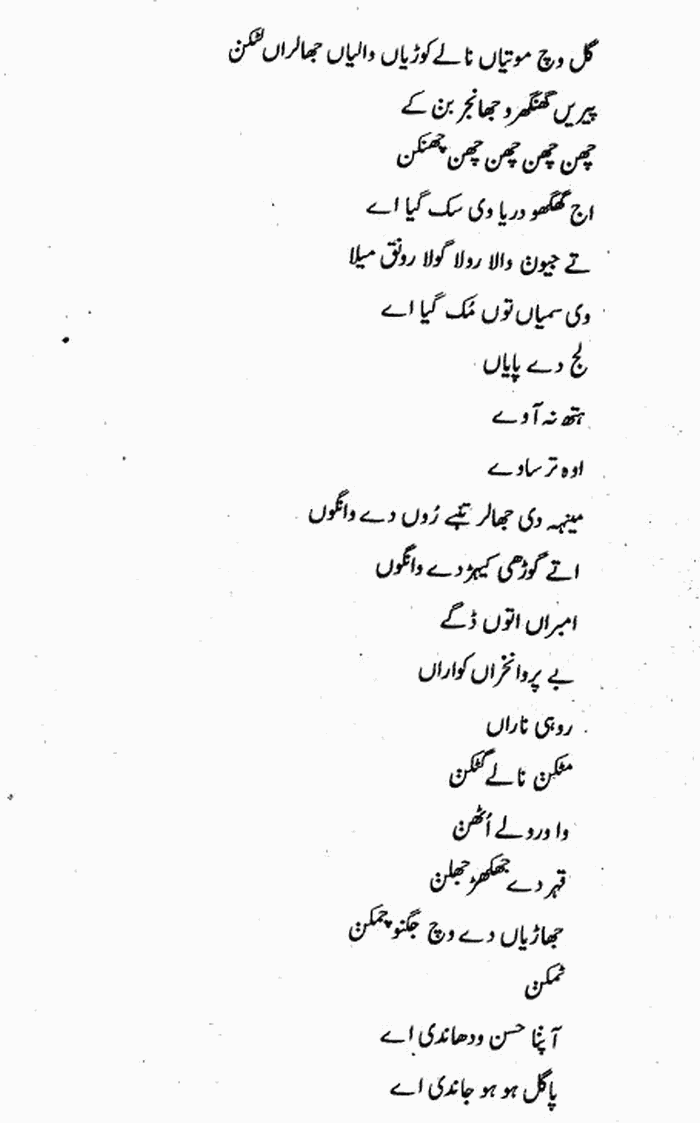 گل وچ موتیاں نالے کوڑیاں والیاں جھالراں لٹکن
پیریں گھنگھرو جھانجر بن کے
چھن چھن چھن چھن چھن چھنکن
اج گھگھو دریا وی سک گیا اے
تے جیون والا رولا گولا رونق میلا
وی سمیاں توں مُک گیا اے
لج دے پایاں
ہتھ نہ آوے
اوہ ترساوے
مینہہ دی جھالر تنبے رُوں دے وانگوں
اتے گوڑھی کیہڑ دے وانگوں
امبراں اتوں ڈگے
بے پروا نخراں کواراں
روہی ناراں
مٹکن نالے گٹکن
وا ورولے اُٹھن
قہر دے جھکھڑ جھلن
جھاڑیاں دے وچ جگنو چمکن
ٹمکن
آپنا حسن ودھاندی اے
پاگل ہو ہو جاندی اے